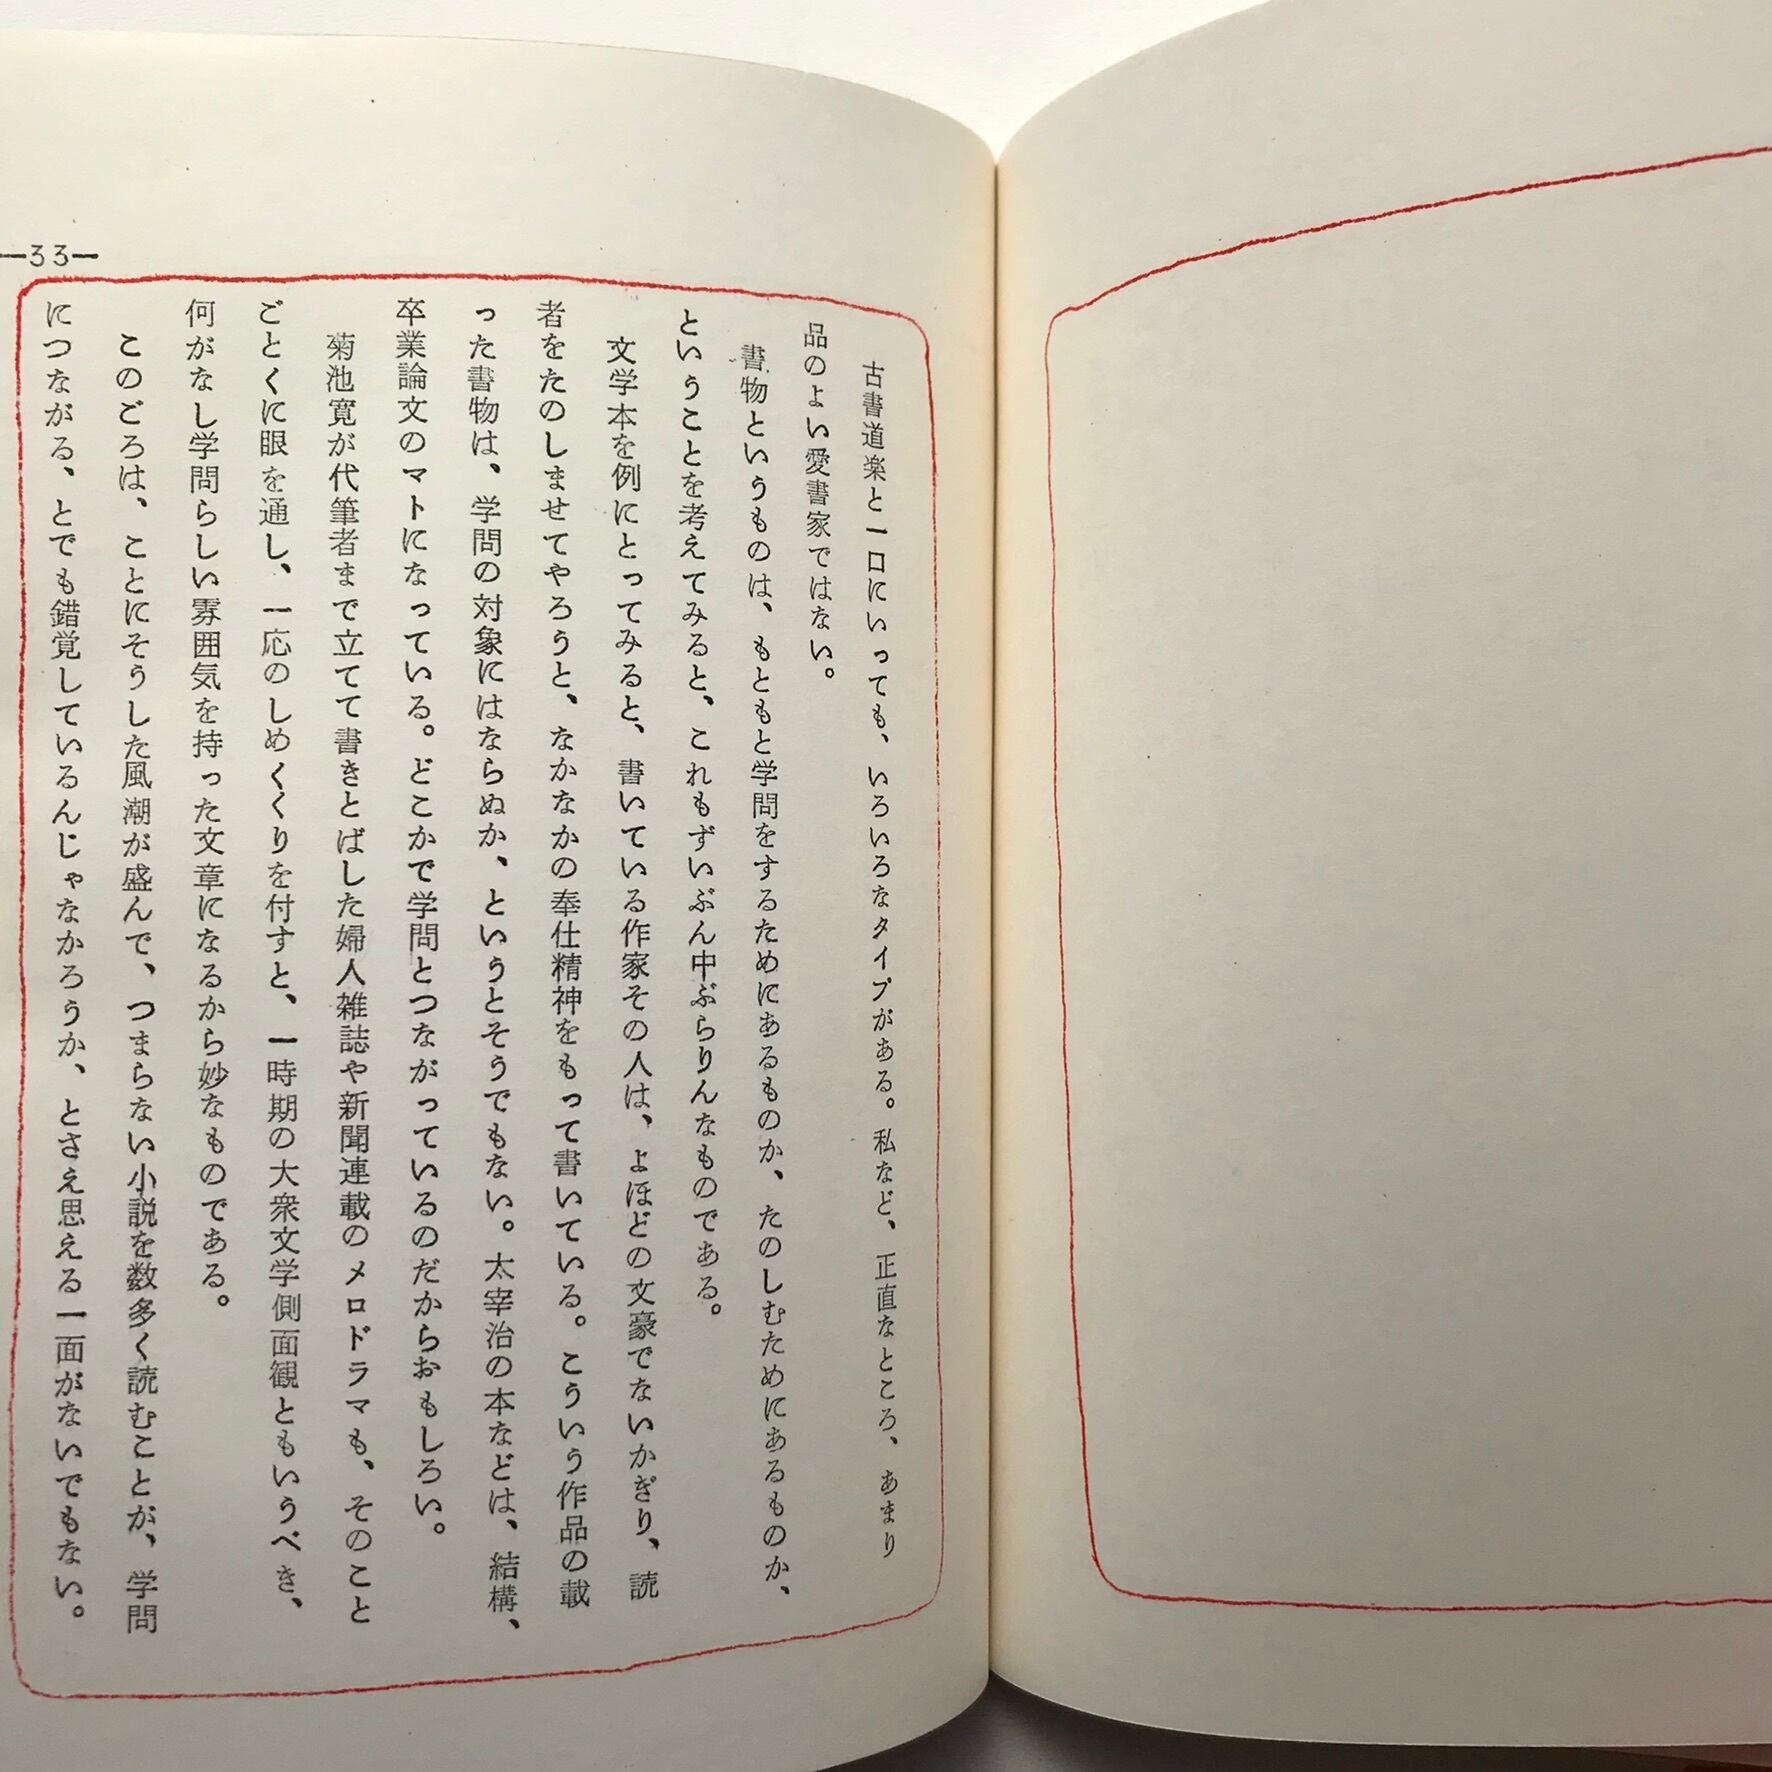 —33—
古書道楽と一口にいっても、いろいろなタイプがある。私など、正直なところ、あまり
品のよい愛書家ではない。
書物というものは、もともと学問をするためにあるものか、たのしむためにあるものか、
ということを考えてみると、これもずいぶん中ぶらりんなものである。
文学本を例にとってみると、書いている作家その人は、よほどの文豪でないかぎり、読
者をたのしませてやろうと、なかなかの奉仕精神をもって書いている。こういう作品の載
った書物は、学問の対象にはならぬか、というとそうでもない。太宰治の本などは、結構、
卒業論文のマトになっている。どこかで学問とつながっているのだからおもしろい。
菊池寛が代筆者まで立てて書きとばした婦人雑誌や新聞連載のメロドラマも、そのこと
ごとくに眼を通し、一応のしめくくりを付すと、一時期の大衆文学側面観ともいうべき、
何がなし学問らしい雰囲気を持った文章になるから妙なものである。
このごろは、ことにそうした風潮が盛んで、つまらない小説を数多く読むことが、学問
につながる、とでも錯覚しているんじゃなかろうか、とさえ思える一面がないでもない。